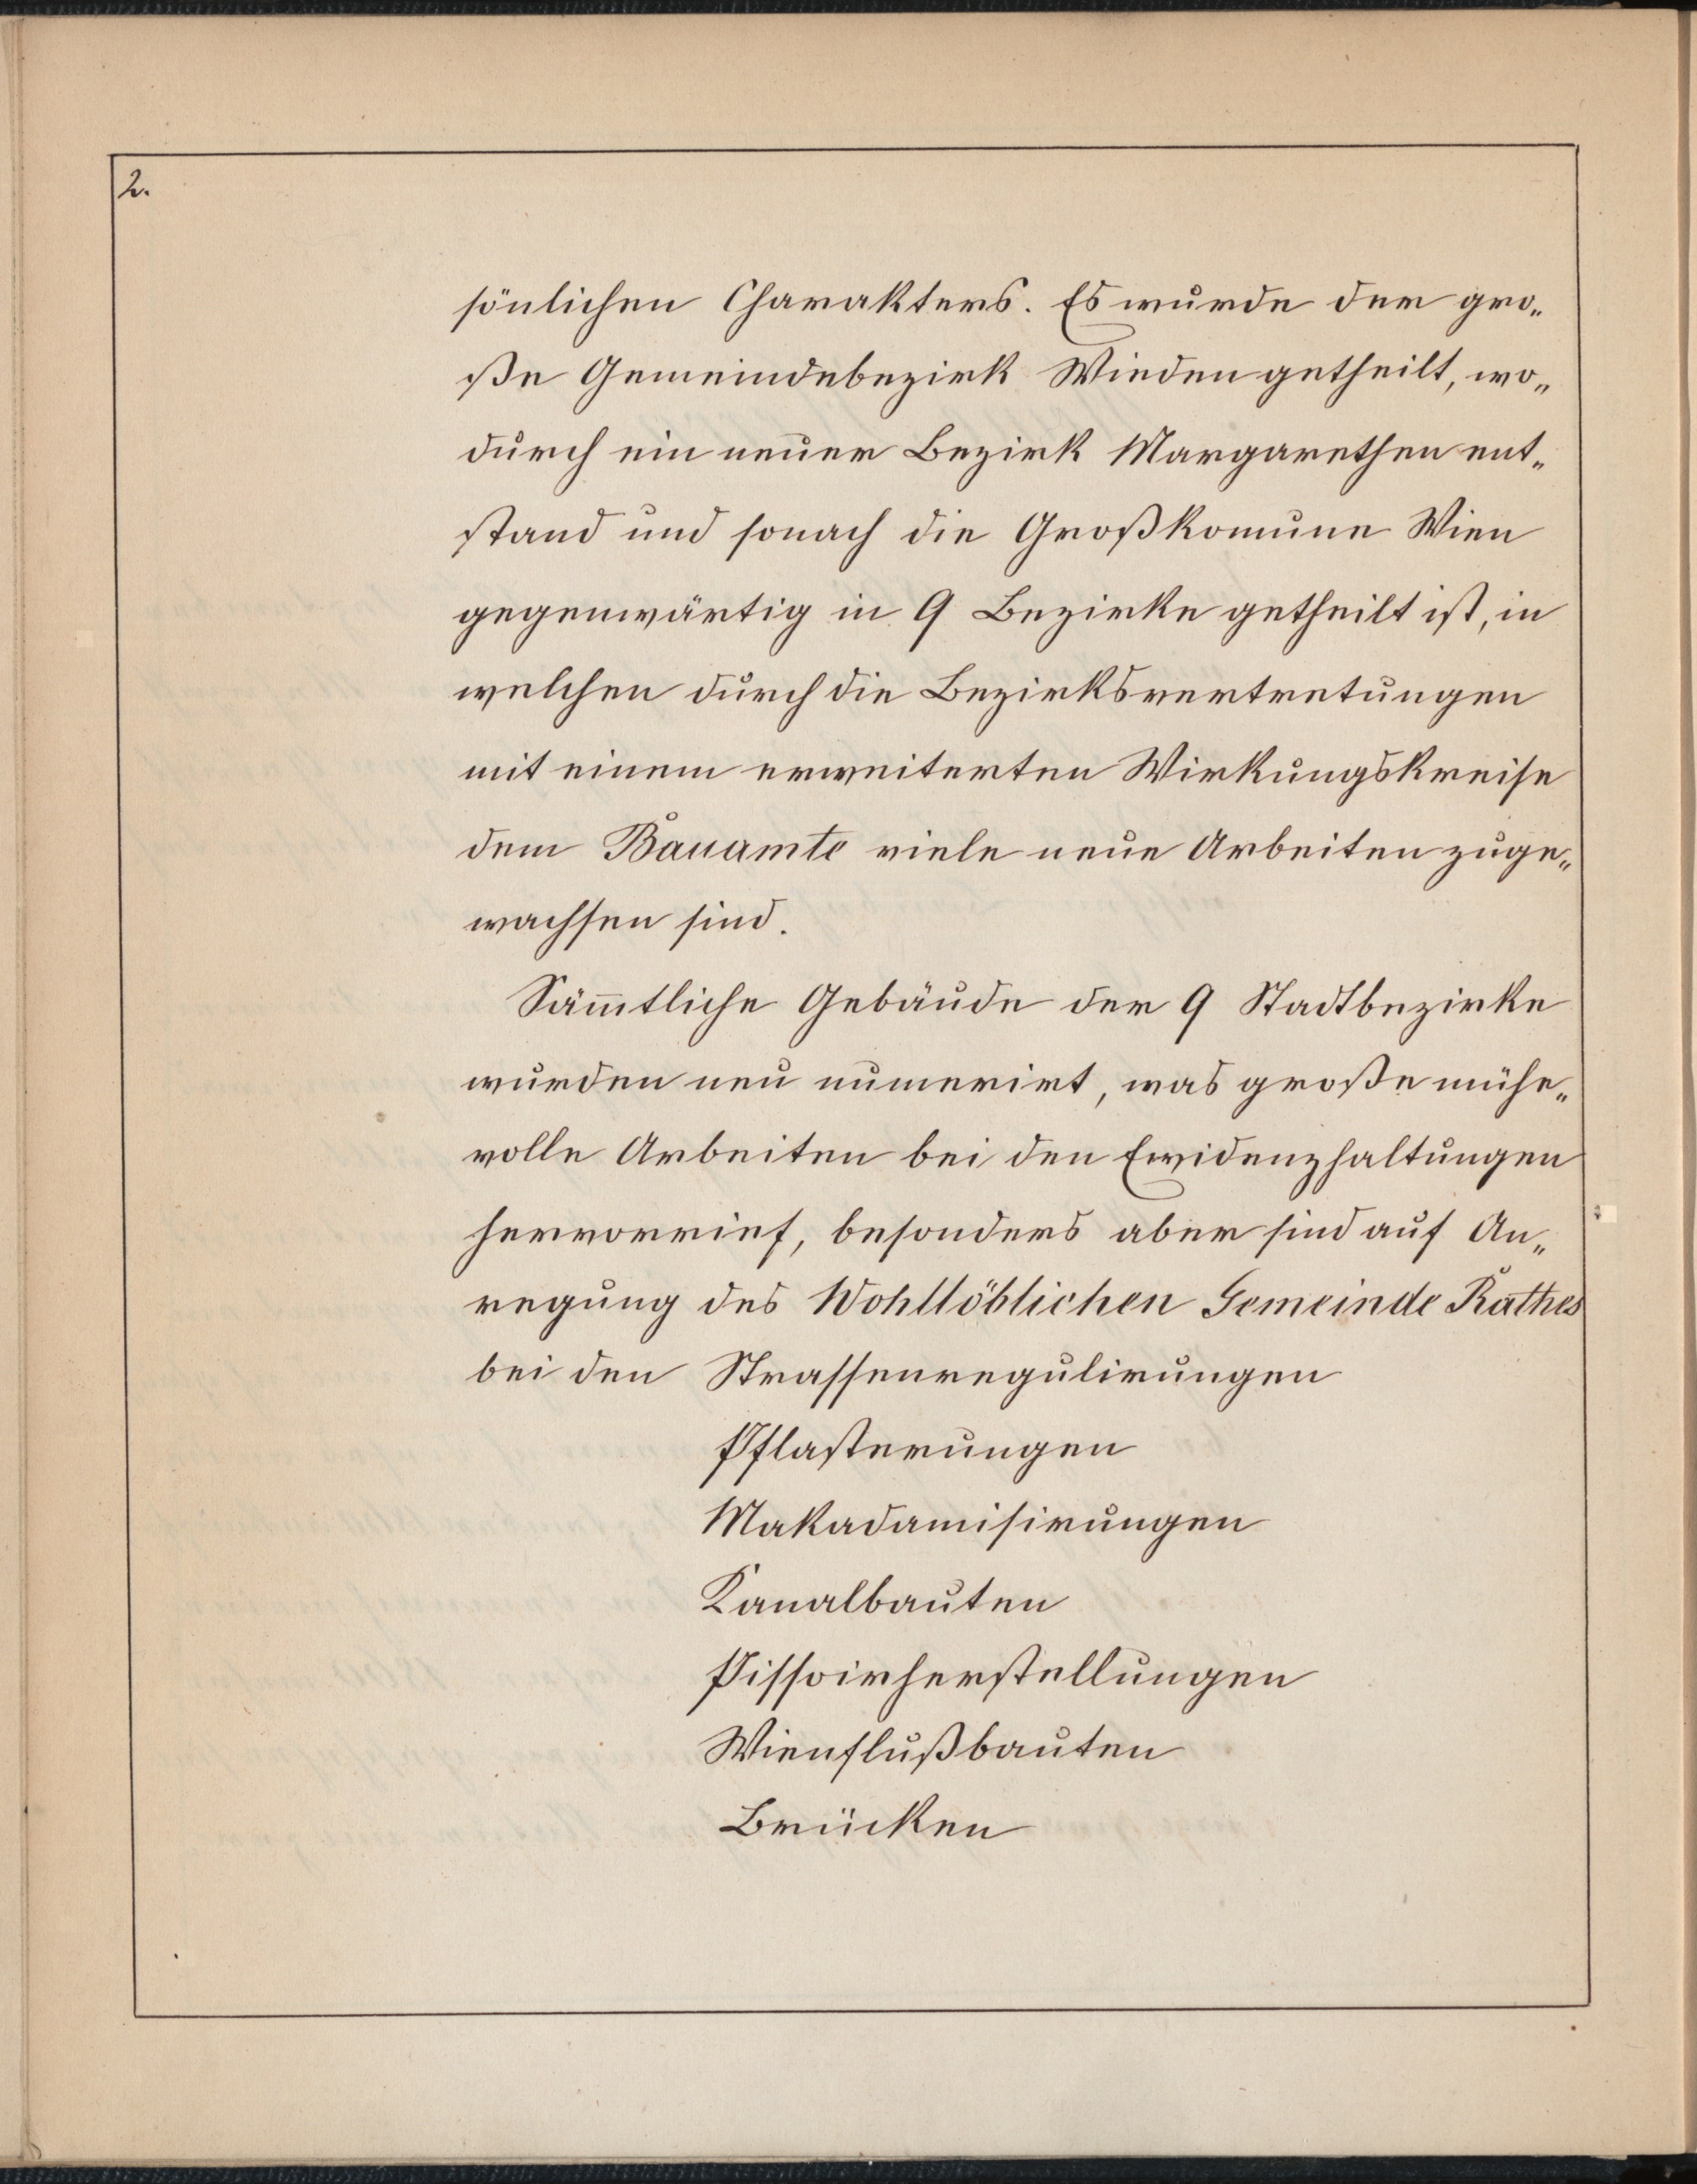 2.
sönlichen Charakters. Es wurde der gro„
ße Gemeindebezirk Wieden getheilt, wo„
durch ein neuer Bezirk Margarethen ent„
stand und sonach die Großkom̅une Wien
gegenwärtig in 9 Bezirke getheilt ist, in
welchen durch die Bezirksvertretungen
mit einem erweiterten Wirkungskreise
dem Bauamte viele neue Arbeiten zuge„
wachsen sind.
Säm̅tliche Gebäude der 9 Stadtbezirke
wurden neu numerirt, was große mühe„
volle Arbeiten bei den Evidenzhaltungen
hervorrief, besonders aber sind auf An„
regung des Wohllöblichen Gemeinde Rathes
bei den Strassenregulirungen
Pflasterungen
Makadamisirungen
Kanalbauten
Pissoirherstellungen
Wienflußbauten
Brücken